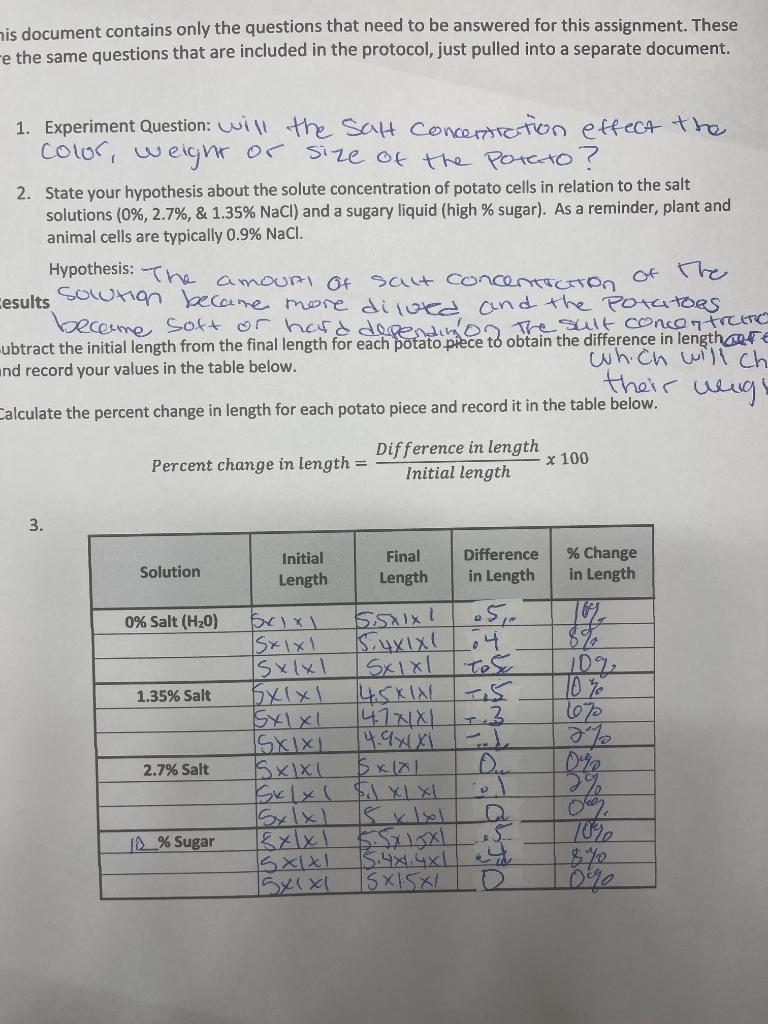 his document contains only the questions that need to be answered for this assignment. These
re the same questions that are included in the protocol, just pulled into a separate document.
1. Experiment Question: will the Salt Concentration effect the
color, weight or size of the Potato?
2. State your hypothesis about the solute concentration of potato cells in relation to the salt
solutions (0%, 2.7%, & 1.35% NaCl) and a sugary liquid (high % sugar). As a reminder, plant and
animal cells are typically 0.9% NaCl.
Hypothesis: The amount of salt concentration of the
Results solution became more diluted and the Potatoes
become soft or hard depending on the salt concentratio
ubtract the initial length from the final length for each potato piece to obtain the difference in length
nd record your values in the table below. which will ch
their weigh
Calculate the percent change in length for each potato piece and record it in the table below.
Percent change in length = Difference in length / Initial length x 100
3.
Solution Initial Length Final Length Difference in Length % Change in Length
0% Salt (H₂O) 5x1x1 5.5x1x1 .5 10%
5x1x1 5.4x1x1 .4 8%
5x1x1 5x1x1 10%
1.35% Salt 5x1x1 4.5x1x1 -.5 10%
5x1x1 4.7x1x1 -.3 6%
5x1x1 4.9x1x1 -.1 2%
2.7% Salt 5x1x1 5x1x1 0 0%
5x1x1 5.1x1x1 .1 2%
5x1x1 5x1x1 0 0%
10 % Sugar 5x1x1 5.5x1.5x1 .5 10%
5x1x1 5.4x1.4x1 .4 8%
5x1x1 5x1.5x1 0 0%